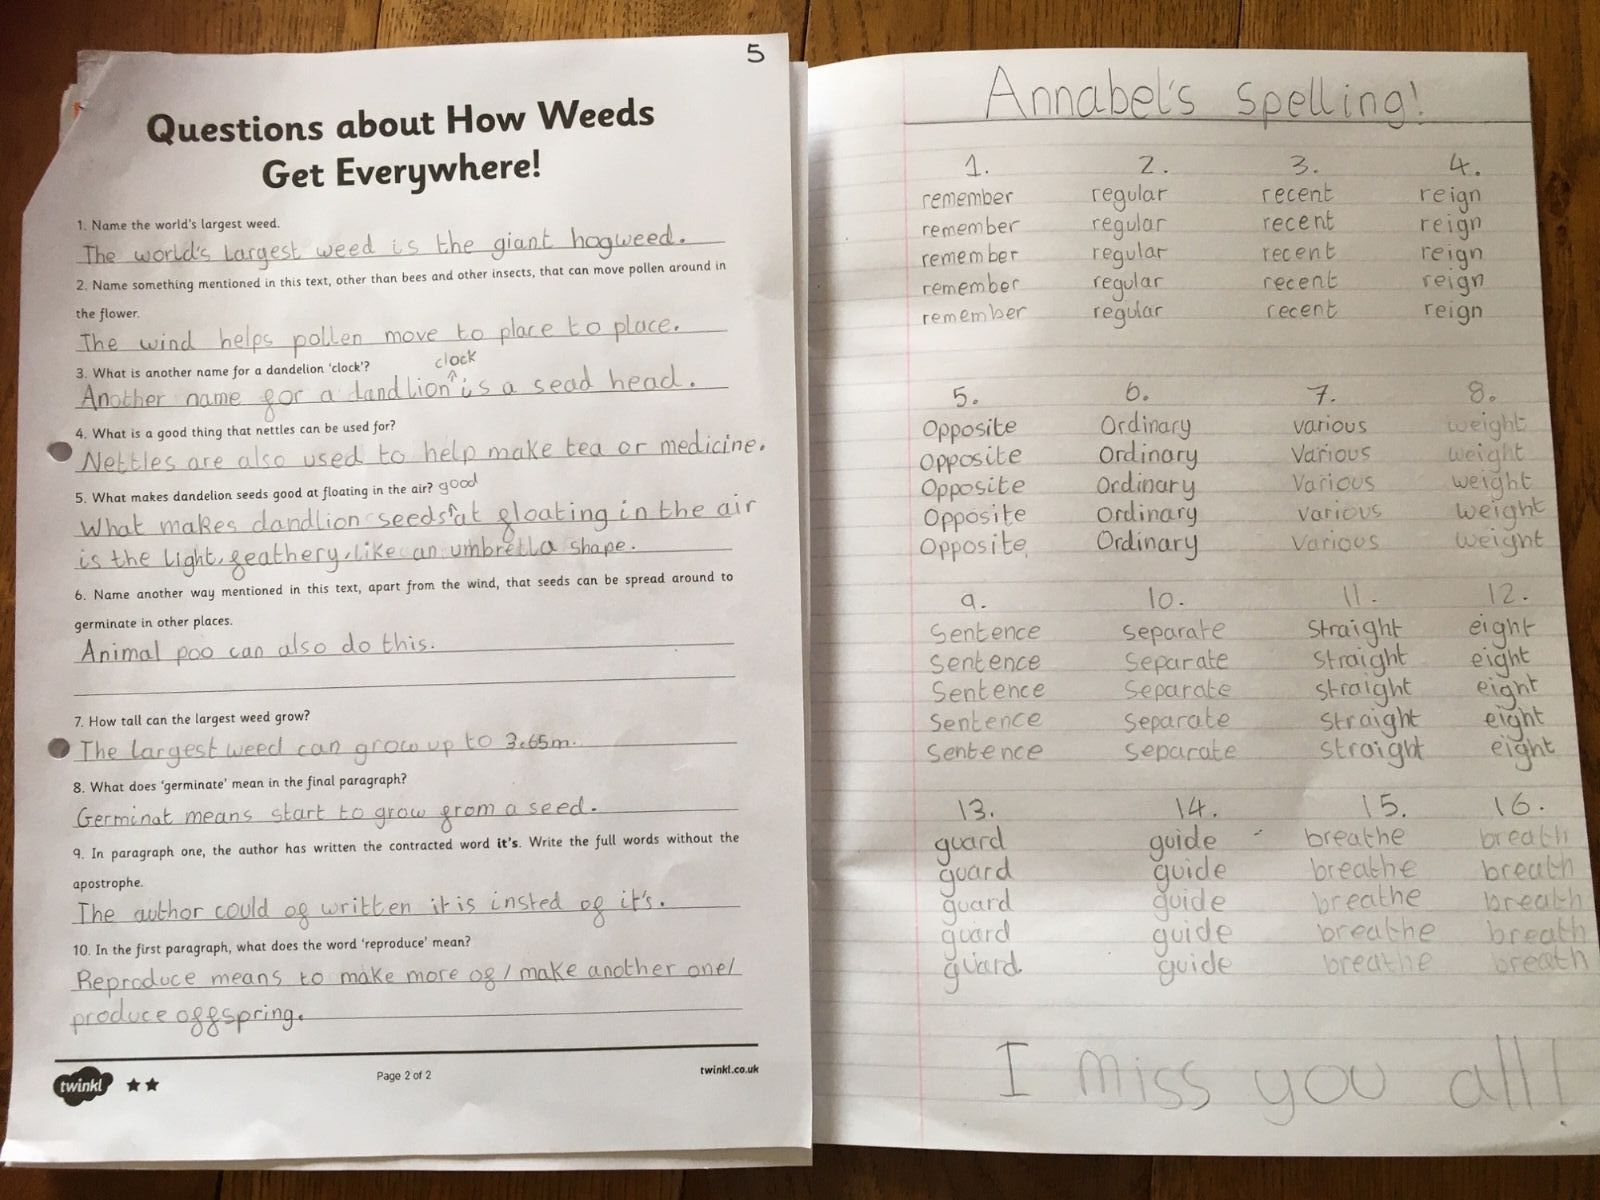 5
Questions about How Weeds
Get Everywhere!
1. Name the world's largest weed.
The world's largest weed is the giant hogweed.
2. Name something mentioned in this text, other than bees and other insects, that can move pollen around in
the flower.
The wind helps pollen move to place to place.
3. What is another name for a dandelion 'clock'?
clock
Another name for a dandlion ^ is a sead head.
4. What is a good thing that nettles can be used for?
Nettles are also used to help make tea or medicine.
5. What makes dandelion seeds good at floating in the air?
good
What makes dandlion seeds ^ at floating in the air
is the light, feathery, like an umbrella shape.
6. Name another way mentioned in this text, apart from the wind, that seeds can be spread around to
germinate in other places.
Animal poo can also do this.
7. How tall can the largest weed grow?
The largest weed can grow up to 3.65m.
8. What does 'germinate' mean in the final paragraph?
Germinat means start to grow from a seed.
9. In paragraph one, the author has written the contracted word it's. Write the full words without the
apostrophe.
The author could of written it is insted of it's.
10. In the first paragraph, what does the word 'reproduce' mean?
Reproduce means to make more of / make another one/
produce offspring.
twinkl
Page 2 of 2
twinkl.co.uk
Annabel's spelling!
1. 2. 3. 4.
remember regular recent reign
remember regular recent reign
remember regular recent reign
remember regular recent reign
remember regular recent reign
5. 6. 7. 8.
Opposite Ordinary various weight
Opposite Ordinary Various weight
Opposite Ordinary Various weight
Opposite Ordinary various weight
Opposite Ordinary Various weight
9. 10. 11. 12.
Sentence separate Straight eight
Sentence Separate Straight eight
Sentence Separate straight eight
Sentence Separate straight eight
Sentence Separate straight eight
13. 14. 15. 16.
guard guide breathe breath
guard guide breathe breath
guard guide breathe breath
guard guide breathe breath
guard guide breathe breath
I miss you all!